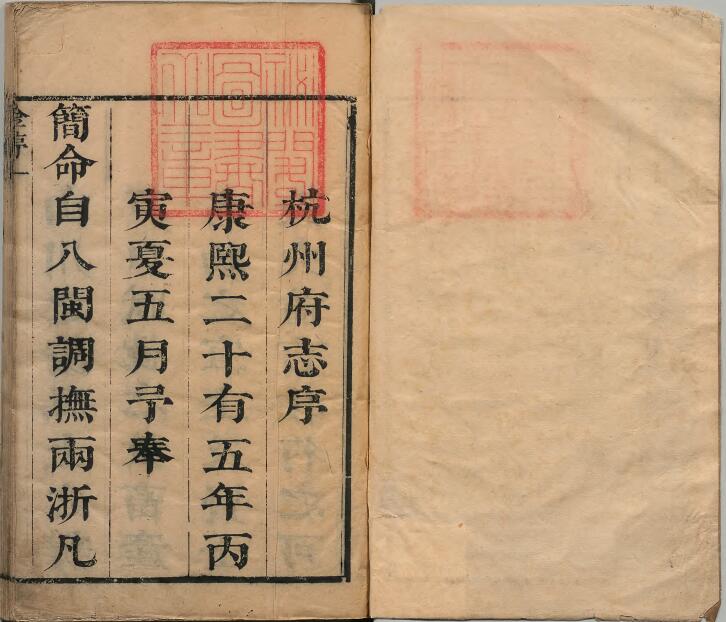 杭州府志序
康熙二十有五年丙
寅夏五月予奉
簡命自八閩調撫兩浙凡